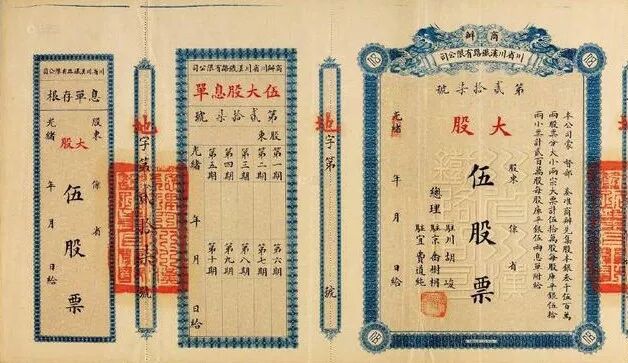 商辦
川省川漢鐵路有限公司
第貳拾柒號
本公司蒙 督部 奏准商辦兌集股本銀叁千伍百萬
兩股票分大小兩宗大票計伍拾萬股每股庫平銀伍拾
兩小票計貳百萬股每股庫平銀伍兩息單附給
大股
股東 係 省
伍股票
總理
駐川 胡峻
駐京 喬樹枏
駐宜 費道純
光緒 年 月 日給
地字第 號
商辦川省川漢鐵路有限公司
伍大股息單
第貳拾柒號
股東
第一期 第六期
第二期 第七期
第三期 第八期
第四期 第九期
第五期 第十期
光緒 年 月 日給
地字第貳拾柒號
川省川漢鐵路有限公司
息單存根
股東 係 省
大股伍股票
光緒 年 月 日給